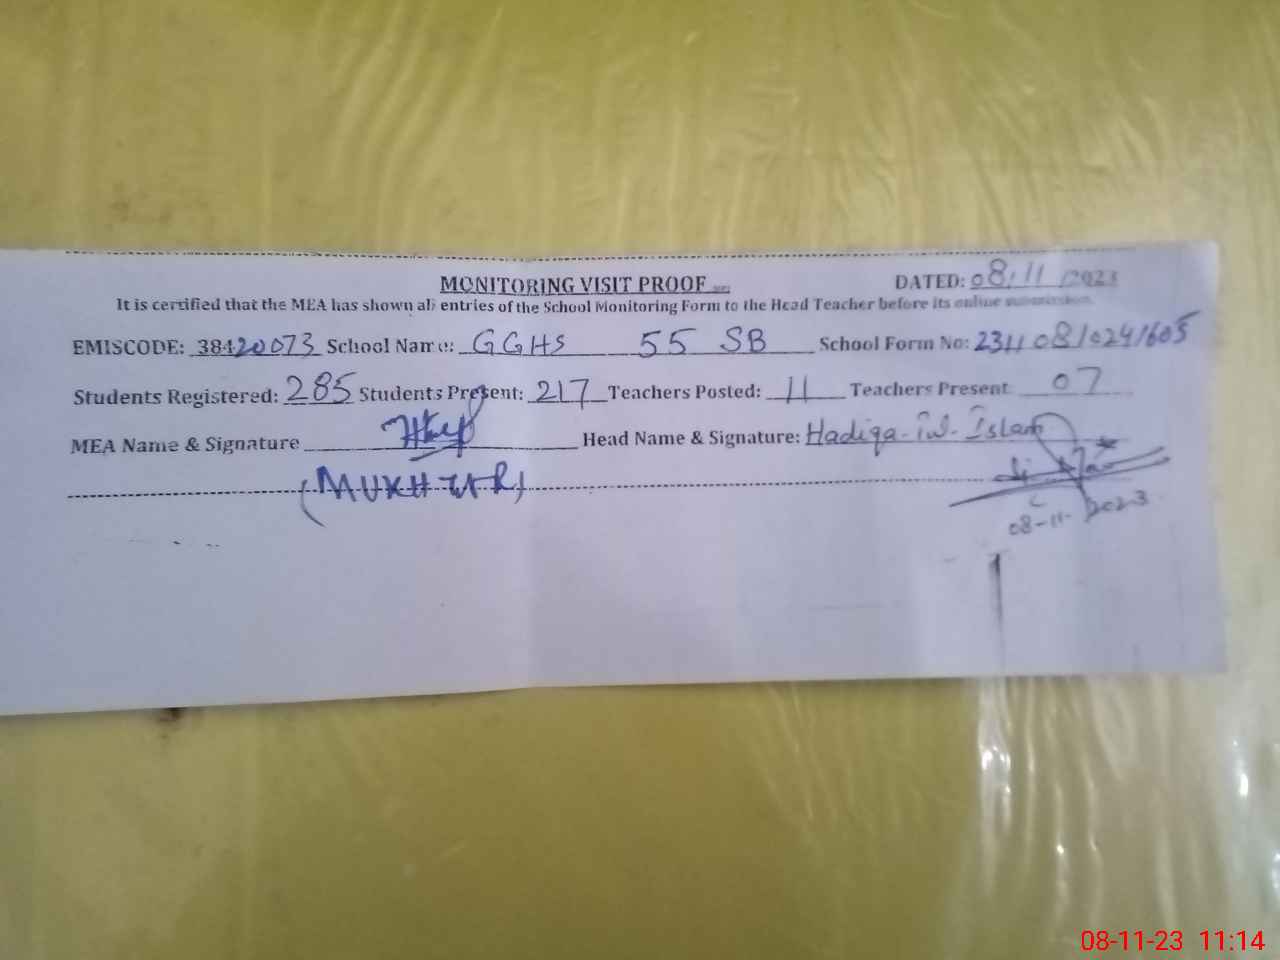 MONITORING VISIT PROOF DATED: 08/11/2023
It is certified that the MEA has shown all entries of the School Monitoring Form to the Head Teacher before its online submission.
EMISCODE: 38420073 School Name: GGHS 55 SB School Form No: 23110810241605
Students Registered: 285 Students Present: 217 Teachers Posted: 11 Teachers Present 07
MEA Name & Signature Head Name & Signature: Hadiqa-tul-Islam
(MUKHTAR)
08-11-2023
08-11-23 11:14